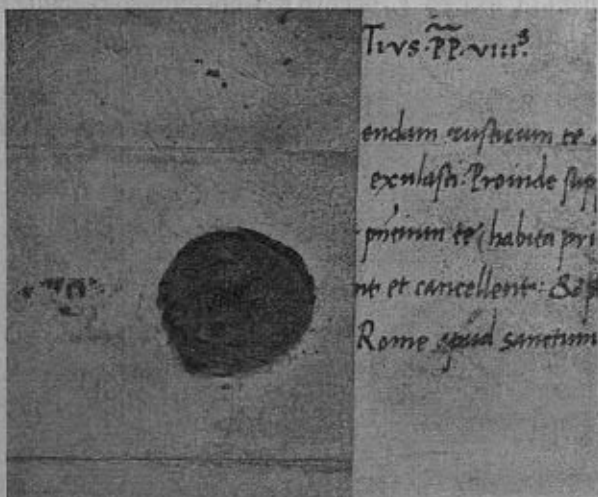 Tius·PP·viii·
endam rusticum te
exulasti. Proinde supp
te habita pri
nt et cancellent:
Rome apud sanctum